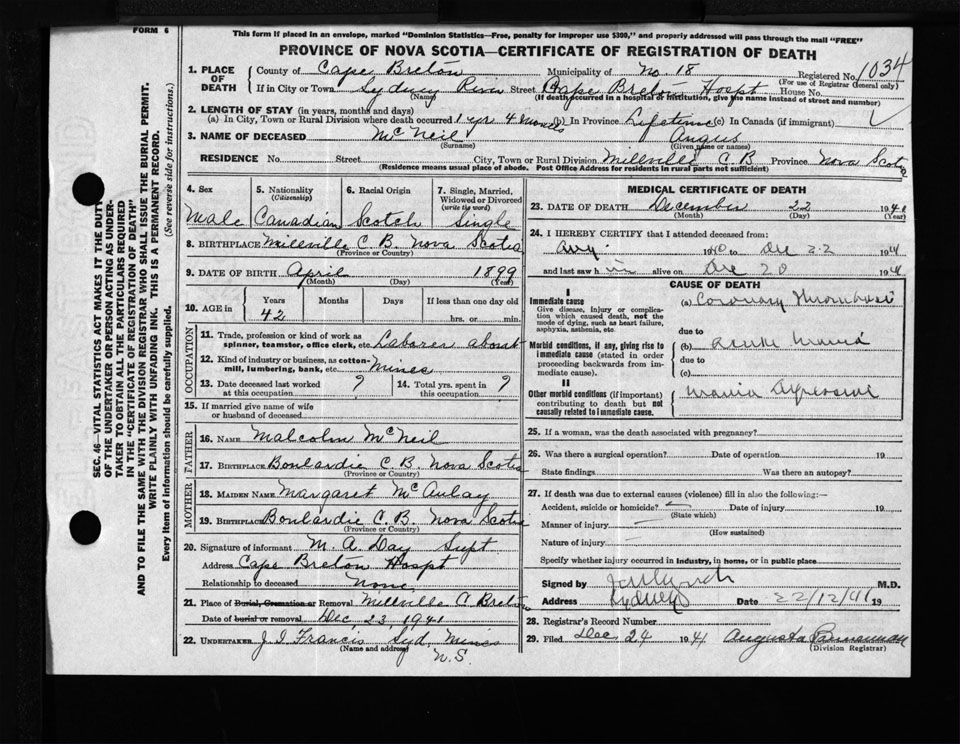 FORM 6
This form if placed in an envelope, marked "Dominion Statistics—Free, penalty for improper use $300," and properly addressed will pass through the mail "FREE"
PROVINCE OF NOVA SCOTIA—CERTIFICATE OF REGISTRATION OF DEATH
1. PLACE OF DEATH County of Cape Breton Municipality of No. 18 Registered No. 1034
(For use of Registrar General only)
If in City or Town Sydney River Street Cape Breton Hospt House No.
(Name) (If death occurred in a hospital or institution, give the name instead of street and number)
2. LENGTH OF STAY (in years, months and days)
(a) In City, Town or Rural Division where death occurred 1 yr 4 months (b) In Province Lifetime (c) In Canada (if immigrant)
3. NAME OF DECEASED McNeil Angus
(Surname) (Given name or names)
RESIDENCE No. Street City, Town or Rural Division Millville C B Province Nova Scotia
(Residence means usual place of abode. Post Office Address for residents in rural parts not sufficient)
4. Sex 5. Nationality (Citizenship) 6. Racial Origin 7. Single, Married, Widowed or Divorced (write the word)
Male Canadian Scotch Single
8. BIRTHPLACE Millville C B. Nova Scotia
(Province or Country)
9. DATE OF BIRTH April 1899
(Month) (Day) (Year)
10. AGE in Years Months Days If less than one day old
42 hrs. or min.
OCCUPATION
11. Trade, profession or kind of work as spinner, teamster, office clerk, etc. Laborer about
12. Kind of industry or business, as cotton-mill, lumbering, bank, etc. Mines
13. Date deceased last worked at this occupation ? 14. Total yrs. spent in this occupation ?
15. If married give name of wife or husband of deceased
FATHER
16. NAME Malcolm McNeil
17. BIRTHPLACE Boulardie C. B. Nova Scotia
(Province or Country)
MOTHER
18. MAIDEN NAME Margaret McAulay
19. BIRTHPLACE Boulardie C. B. Nova Scotia
(Province or Country)
20. Signature of informant M. A. Day Supt
Address Cape Breton Hospt
Relationship to deceased None
21. Place of Burial, Cremation or Removal Millville C Breton
Date of burial or removal Dec, 23, 1941
22. UNDERTAKER J. I Francis Syd Mines
(Name and address) N. S.
MEDICAL CERTIFICATE OF DEATH
23. DATE OF DEATH December 22 194
(Month) (Day) (Year)
24. I HEREBY CERTIFY that I attended deceased from:
Aug. 1940 to Dec 22 1941
and last saw him alive on Dec 20 1941
CAUSE OF DEATH
I
Immediate cause
Give disease, injury or complication which caused death, not the mode of dying, such as heart failure, asphyxia, asthenia, etc.
(a) Coronary Thrombosis
due to
Morbid conditions, if any, giving rise to immediate cause (stated in order proceeding backwards from immediate).
(b)
due to
(c)
II
Other morbid conditions (if important) contributing to death but not causally related to immediate cause.
25. If a woman, was the death associated with pregnancy?
26. Was there a surgical operation? Date of operation 19
State findings Was there an autopsy?
27. If death was due to external causes (violence) fill in also the following:—
Accident, suicide or homicide? Date of injury 19
(State which)
Manner of injury
(How sustained)
Nature of injury
Specify whether injury occurred in industry, in home, or in public place
Signed by M.D.
Address Sydney Date 22/12/41 19
28. Registrar's Record Number
29. Filed Dec 24 1941 Augusta
(Division Registrar)
SEC. 46—VITAL STATISTICS ACT MAKES IT THE DUTY
OF THE UNDERTAKER OR PERSON ACTING AS UNDERTAKER TO OBTAIN ALL THE PARTICULARS REQUIRED
IN THE "CERTIFICATE OF REGISTRATION OF DEATH"
AND TO FILE THE SAME WITH THE DIVISION REGISTRAR WHO SHALL ISSUE THE BURIAL PERMIT.
WRITE PLAINLY WITH UNFADING INK. THIS IS A PERMANENT RECORD.
Every item of information should be carefully supplied. (See reverse side for instructions.)